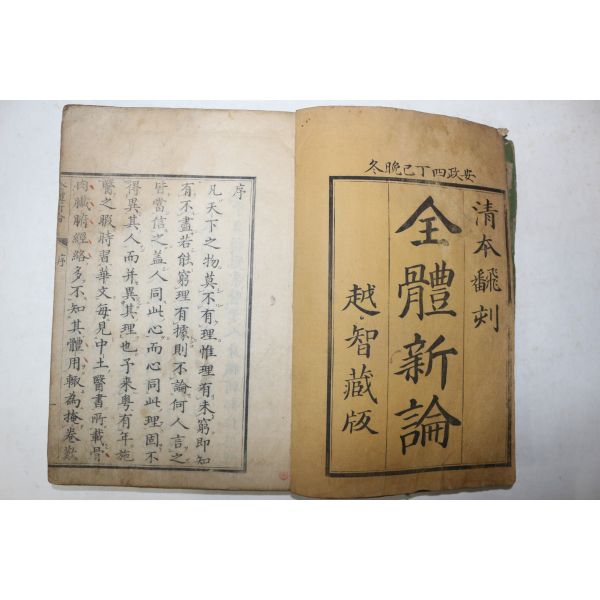 安政四丁巳晩冬
清本飜刻
全體新論
越智藏版
序
凡天下之物莫不有理惟理有未窮即知
有不盡若能窮理有據則不論何人言之
皆當信之盖人同此心而心同此理固不
得異其人而并異其理也予來粤有年施
醫之暇時習華文每見中土醫書所載骨
肉臟腑經絡多不知其體用輒為掩卷歎
序